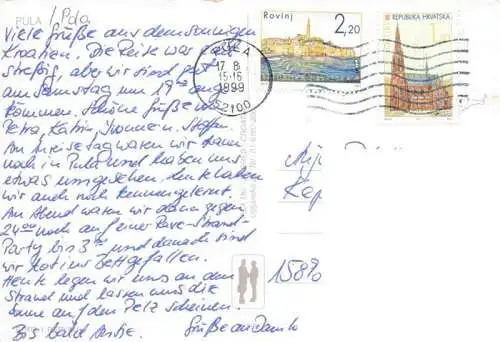 PULA
1, Pula
Viele Grüße aus dem sonnigen
Kroatien. Die Reise war zwar
streßig, aber wir sind gut
am Samstag um 17°° ange
kommen. Schöne Grüße von
Petra, Katrin, Yvonne u. Steffen.
Am Anreisetag waren wir dann
noch in Pula und haben uns
etwas umgesehen, denke haben
wir auch noch kennengelernt.
Am Abend waren wir dann gegen
24°° noch auf einer Rave-Strand-
Party bis 3°° und danach sind
wir tot ins Bett gefallen.
Heute legen wir uns an den
Strand und lassen uns die
Sonne auf den Pelz scheinen.
Bis bald Antje. Grüße an Danilo
Rovinj
2,20
REPUBLIKA HRVATSKA
PULA
17 8
15-16
1999
52100
15890